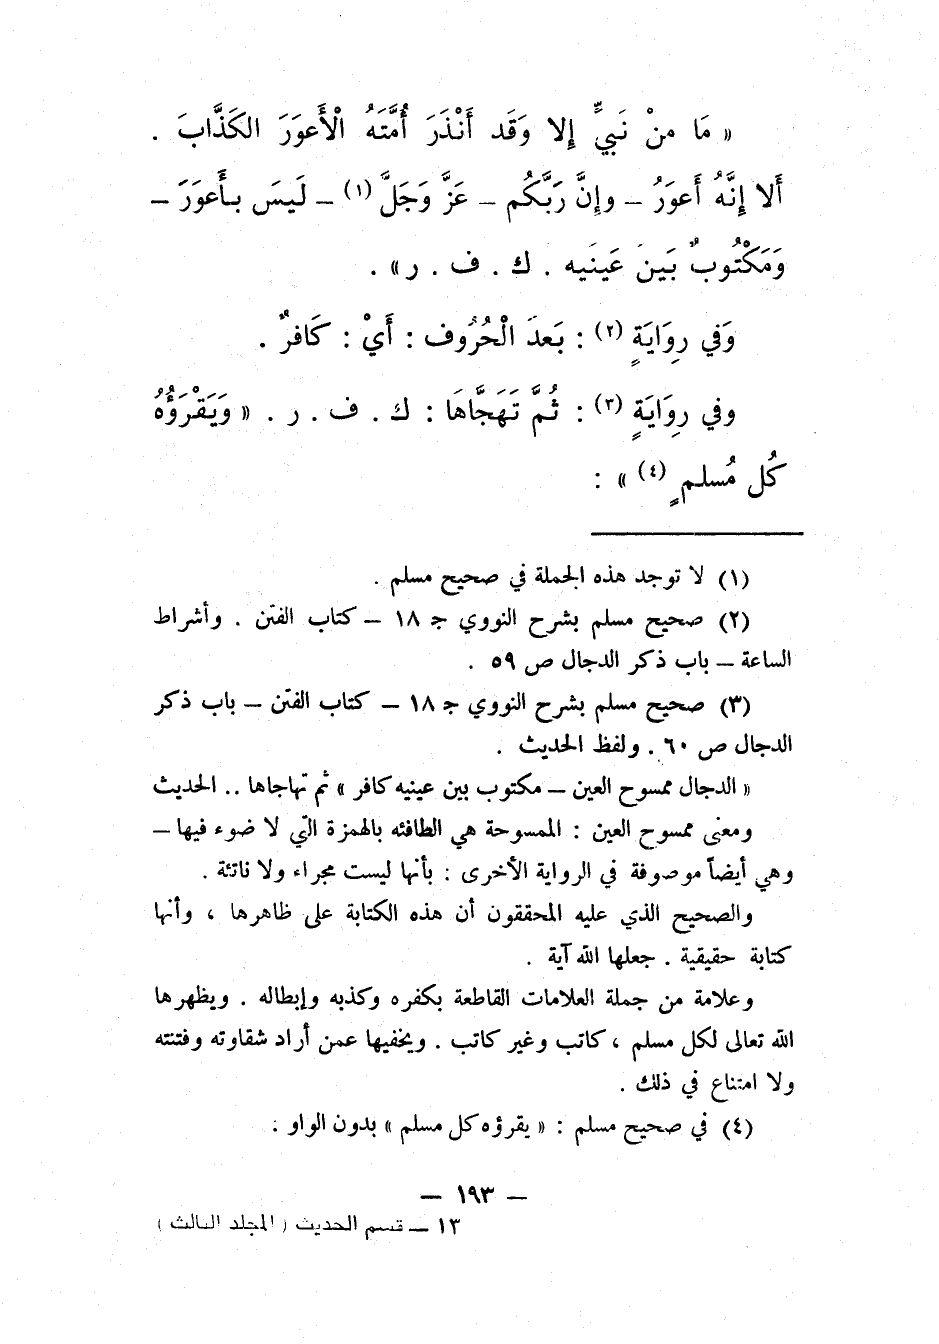 « مَا منْ نَبيٍّ إلا وَقَد أَنْذَرَ أُمَّتَهُ الْأَعوَرَ الكَذَّابَ .
أَلا إنَّهُ أَعوَرُ – وإنَّ رَبَّكُم – عَزَّ وَجَلَّ (١) – لَيسَ بأَعوَرَ –
وَمَكْتُوبٌ بَينَ عَينَيه . ك . ف . ر» .
وَفي روَايَةٍ (٢) : بَعدَ الْحُرُوف : أَيْ : كَافرٌ .
وفي روَايَةٍ (٣) : ثُمَّ تَهَجَّاهَا : ك . ف . ر . « وَيَقْرَؤُهُ
كُل مُسلمٍ (٤) » :
(١) لا توجد هذه الجملة في صحيح مسلم .
(٢) صحيح مسلم بشرح النووي ج ١٨ – كتاب الفتن . وأشراط
الساعة – باب ذكر الدجال ص ٥٩ .
(٣) صحيح مسلم بشرح النووي ج ١٨ – كتاب الفتن – باب ذكر
الدجال ص ٦٠ . ولفظ الحديث .
« الدجال ممسوح العين – مكتوب بين عينيه كافر » ثم تهاجاها .. الحديث
ومعنى ممسوح العين : الممسوحة هي الطافئه بالهمزة التي لا ضوء فيها –
وهي أيضاً موصوفة في الرواية الأخرى : بأنها ليست مجراء ولا ناتئة .
والصحيح الذي عليه المحققون أن هذه الكتابة على ظاهرها ، وأنها
كتابة حقيقية . جعلها الله آية .
وعلامة من جملة العلامات القاطعة بكفره وكذبه وإبطاله . ويظهرها
الله تعالى لكل مسلم ، كاتب وغير كاتب . ويخفيها عمن أراد شقاوته وفتنته
ولا امتناع في ذلك .
(٤) في صحيح مسلم : « يقرؤه كل مسلم » بدون الواو .
– ١٩٣ –
١٣ – قسم الحديث ( المجلد الثالث )